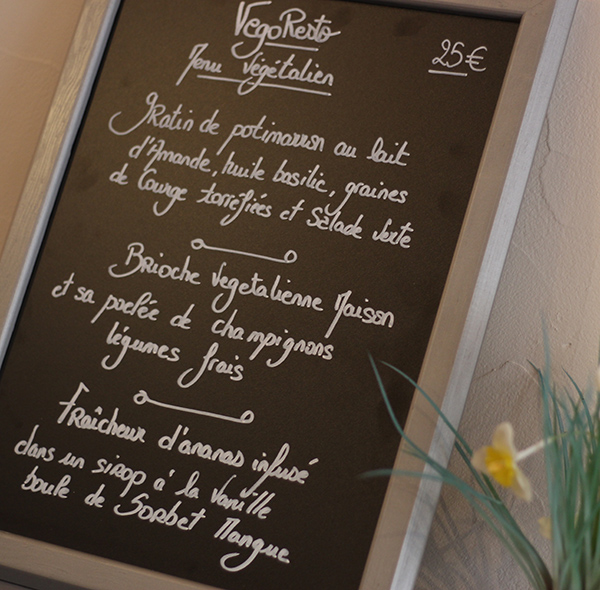 VegoResto
25€
Menu végétalien
Gratin de potimarron au lait
d'Amande, huile basilic, graines
de Courge torréfiées et Salade verte
Brioche Vegetalienne Maison
et sa poelée de champignons
légumes frais
Fraîcheur d'ananas infusé
dans un sirop à la Vanille
boule de Sorbet Mangue